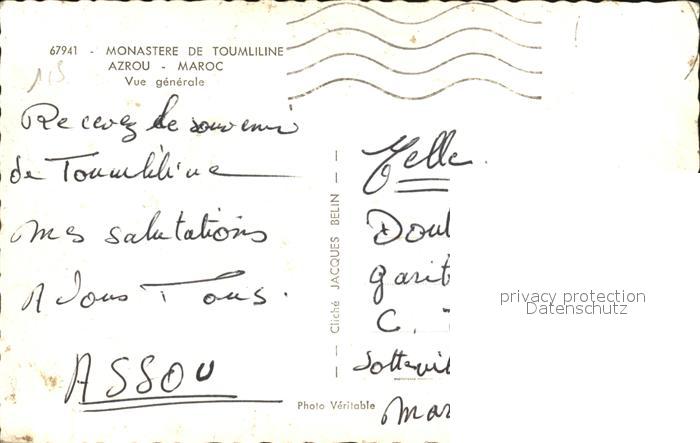 67941 - MONASTERE DE TOUMLILINE
AZROU - MAROC
Vue générale
Recevez le souvenir
de Toumliline
Mes salutations
A Vous Tous.
ASSOU
Cliché JACQUES BELIN
Photo Véritable
Melle
C.
privacy protection
Datenschutz